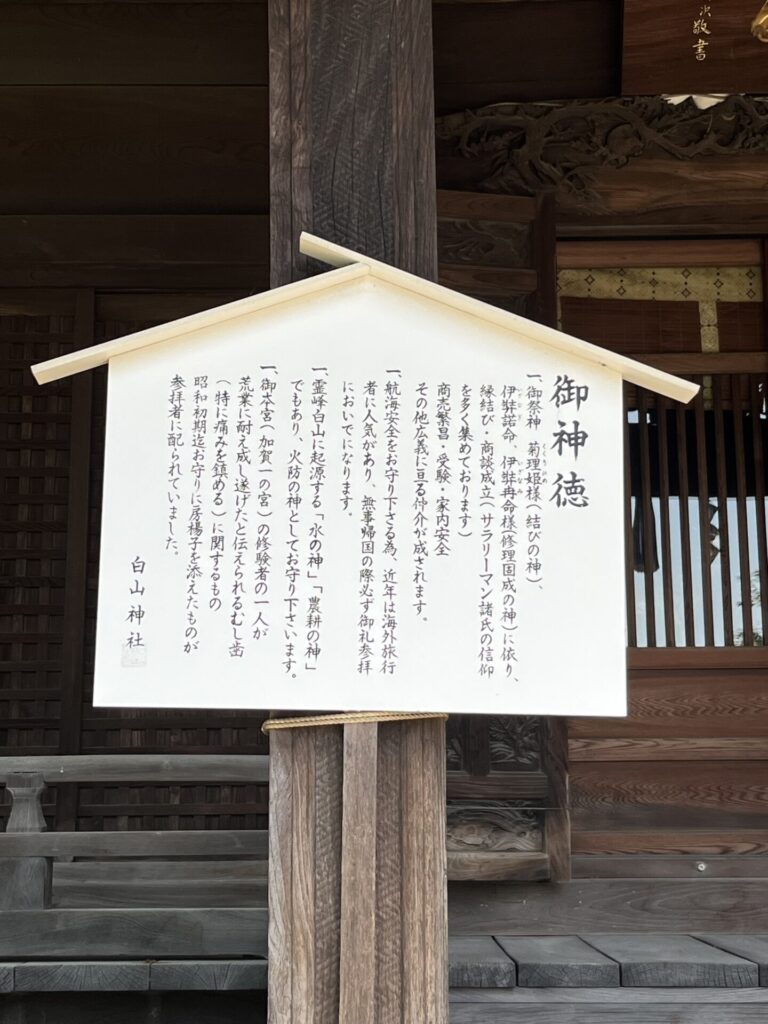 御神徳
一、御祭神　菊理姫様（結びの神）、
伊弉諾命、伊弉冉命様（修理固成の神）に依り、
縁結び・商談成立（サラリーマン諸氏の信仰
を多く集めております）
商売繁昌・受験・家内安全
その他広義に亘る仲介が成されます。
一、航海安全をお守り下さる為、近年は海外旅行
者に人気があり、無事帰国の際必ず御礼参拝
においでになります。
一、霊峰白山に起源する「水の神」「農耕の神」
でもあり、火防の神としてお守り下さいます。
一、御本宮（加賀一の宮）の修験者の一人が
荒業に耐え成し遂げたと伝えられるむし歯
（特に痛みを鎮める）に関するもの
昭和初期迄お守りに房楊子を添えたものが
参拝者に配られていました。
白山神社
敬書